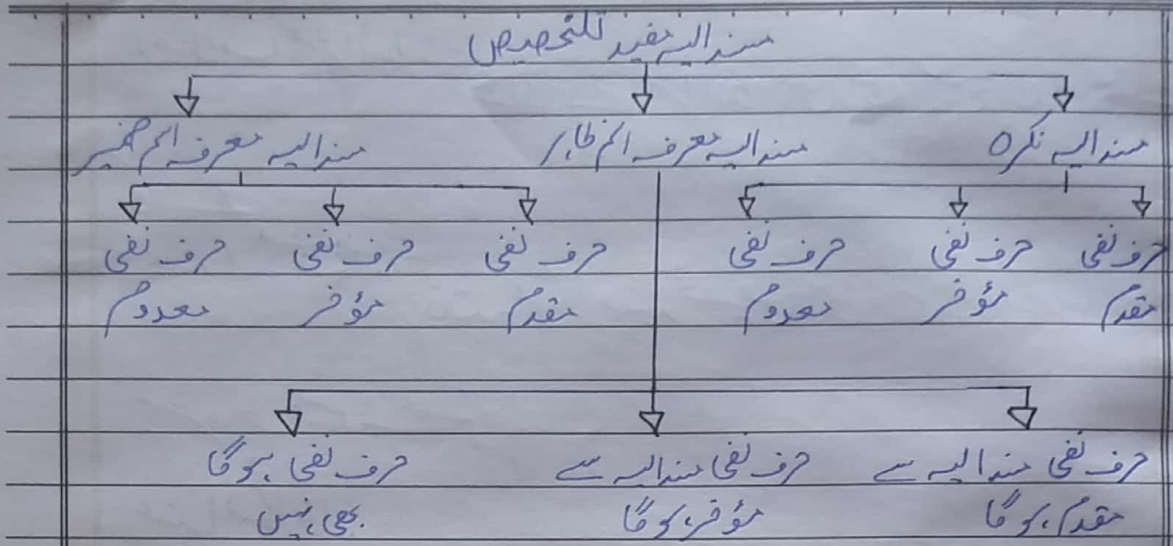 مسند الیہ مفید للتخصیص
مسند الیہ نکرہ
مسند الیہ معرفہ اسم ظاہر
مسند الیہ معرفہ اسم ضمیر
حرف نفی
مقدم
حرف نفی
مؤخر
حرف نفی
معدوم
حرف نفی
مقدم
حرف نفی
مؤخر
حرف نفی
معدوم
حرف نفی مسند الیہ سے
مقدم ہوگا
حرف نفی مسند الیہ سے
مؤخر ہوگا
حرف نفی ہوگا
بھی نہیں